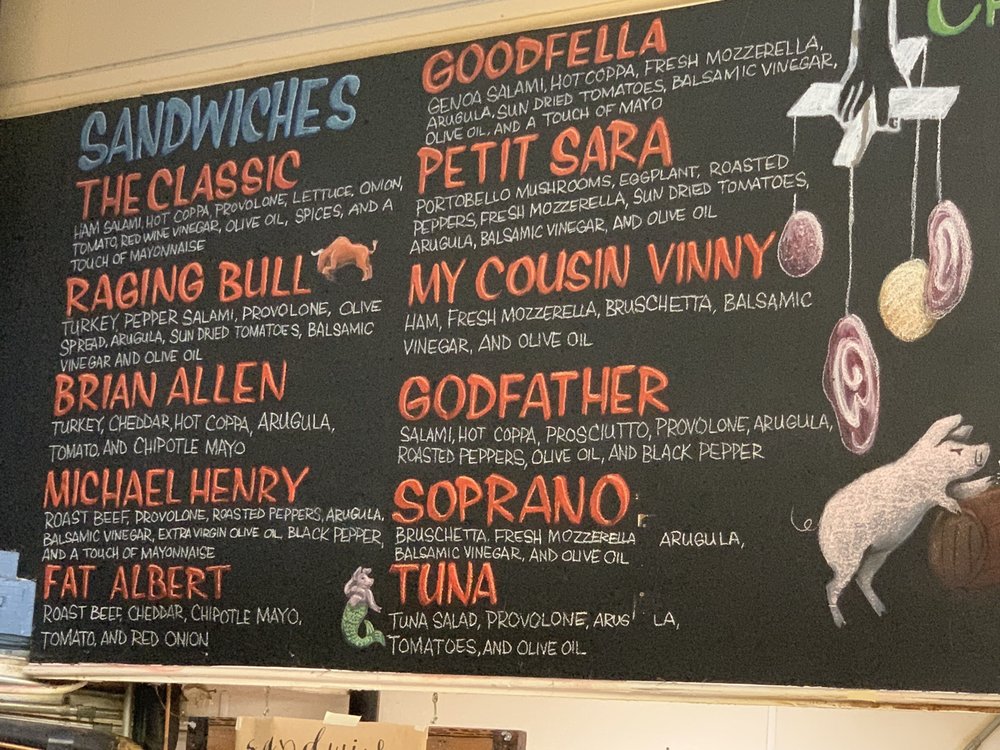 SANDWICHES
THE CLASSIC
HAM SALAMI, HOT COPPA, PROVOLONE, LETTUCE, ONION,
TOMATO, RED WINE VINEGAR, OLIVE OIL, SPICES, AND A
TOUCH OF MAYONNAISE
RAGING BULL
TURKEY, PEPPER SALAMI, PROVOLONE, OLIVE
SPREAD, ARUGULA, SUN DRIED TOMATOES, BALSAMIC
VINEGAR AND OLIVE OIL
BRIAN ALLEN
TURKEY, CHEDDAR, HOT COPPA, ARUGULA,
TOMATO, AND CHIPOTLE MAYO
MICHAEL HENRY
ROAST BEEF, PROVOLONE, ROASTED PEPPERS, ARUGULA,
BALSAMIC VINEGAR, EXTRA VIRGIN OLIVE OIL, BLACK PEPPER,
AND A TOUCH OF MAYONNAISE
FAT ALBERT
ROAST BEEF, CHEDDAR, CHIPOTLE MAYO,
TOMATO, AND RED ONION
GOODFELLA
GENOA SALAMI, HOT COPPA, FRESH MOZZERELLA,
ARUGULA, SUN DRIED TOMATOES, BALSAMIC VINEGAR,
OLIVE OIL, AND A TOUCH OF MAYO
PETIT SARA
PORTOBELLO MUSHROOMS, EGGPLANT, ROASTED
PEPPERS, FRESH MOZZERELLA, SUN DRIED TOMATOES,
ARUGULA, BALSAMIC VINEGAR, AND OLIVE OIL
MY COUSIN VINNY
HAM, FRESH MOZZERELLA, BRUSCHETTA, BALSAMIC
VINEGAR, AND OLIVE OIL
GODFATHER
SALAMI, HOT COPPA, PROSCIUTTO, PROVOLONE, ARUGULA,
ROASTED PEPPERS, OLIVE OIL, AND BLACK PEPPER
SOPRANO
BRUSCHETTA, FRESH MOZZERELLA ARUGULA,
BALSAMIC VINEGAR, AND OLIVE OIL
TUNA
TUNA SALAD, PROVOLONE, ARUG LA,
TOMATOES, AND OLIVE OIL